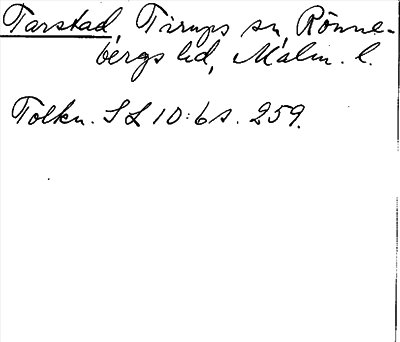 Tarstad, Tirups sn, Rönne-
bergs hd, Malm. l.
Tolkn. SL 10:6 s. 259.